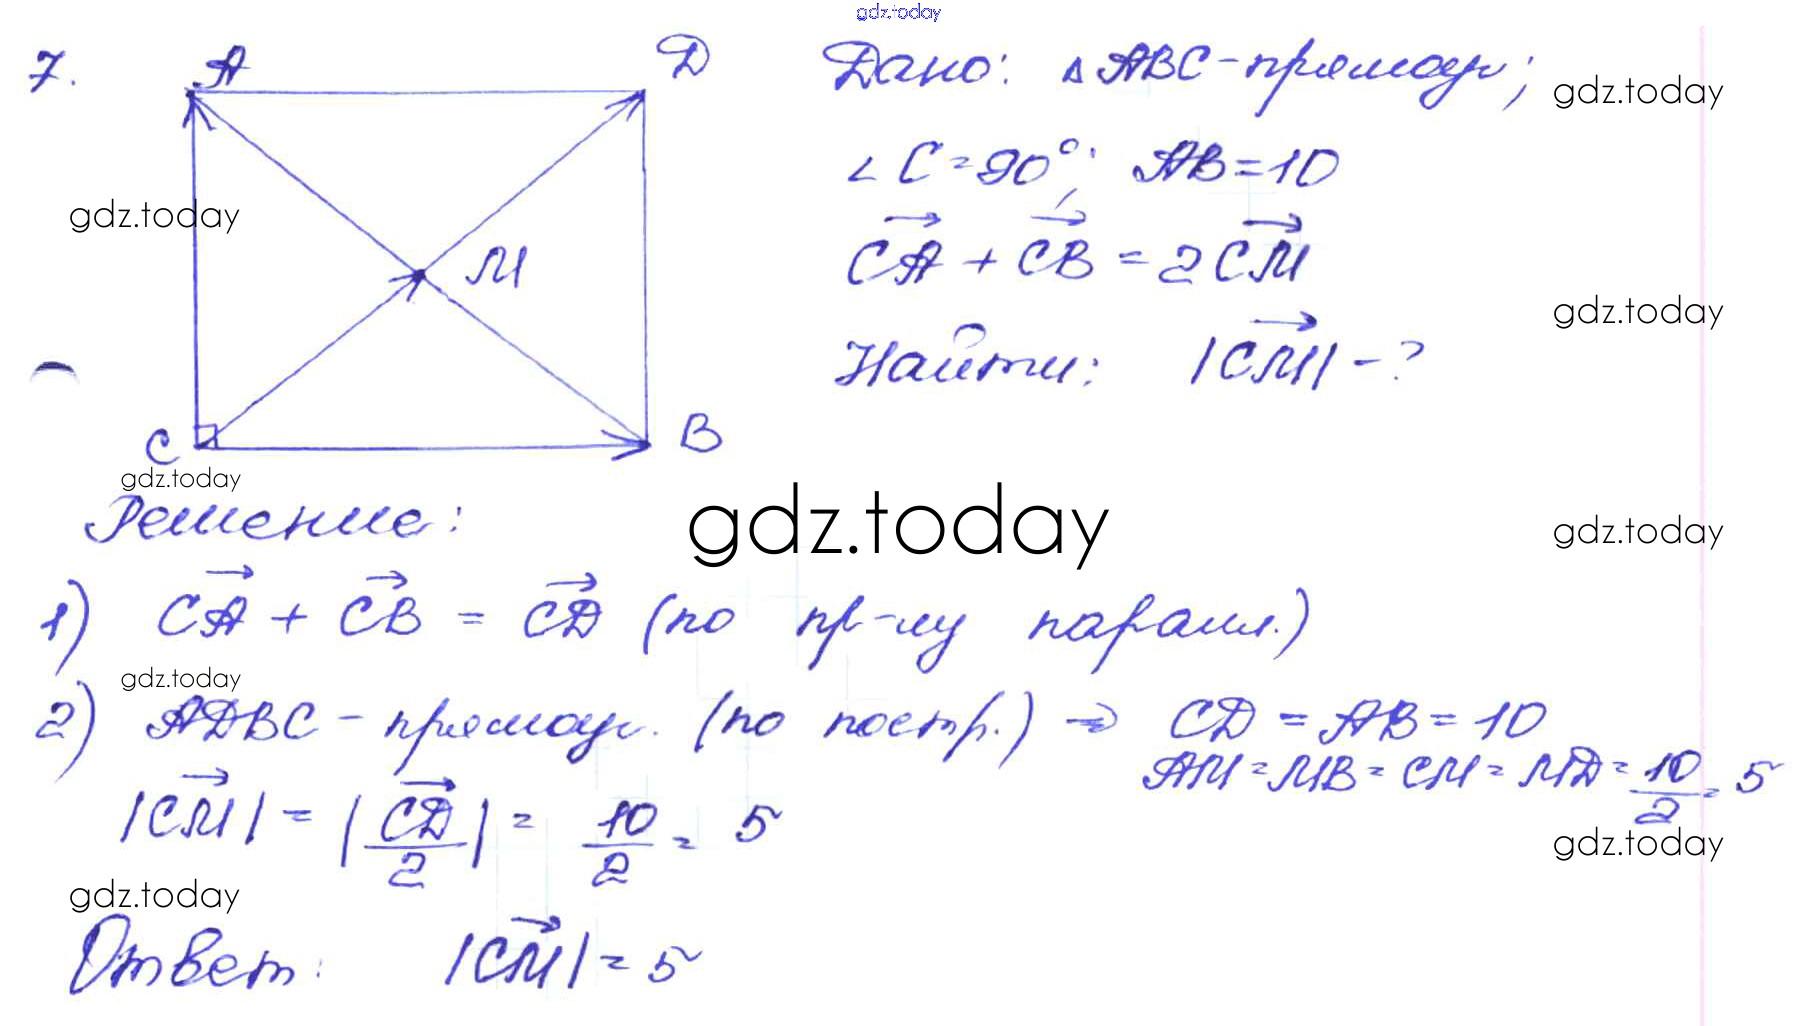 gdz.today
7. A Д
Дано: △ABC-прямоуг;
gdz.today
∠C=90°; AB=10
gdz.today
CA + CB = 2CM
M
gdz.today
Найти: |CM| - ?
C B
gdz.today
Решение:
gdz.today
gdz.today
1) CA + CB = CД (по пр-лу паралл.)
gdz.today
2) AДBC - прямоуг. (по постр.) ⇒ CД = AB = 10
AM = MB = CM = MД = 10/2 = 5
|CM| = |CД/2| = 10/2 = 5
gdz.today
gdz.today
Ответ: |CM| = 5